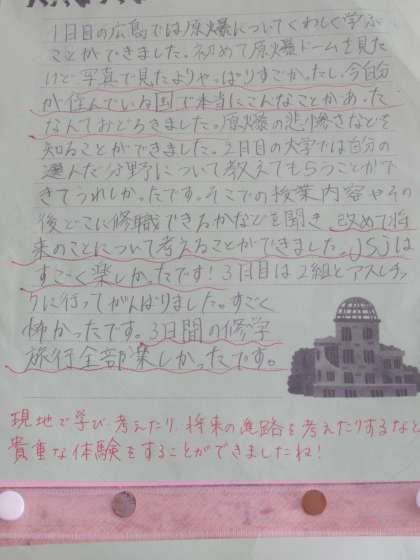 1日目の広島では原爆についてくわしく学ぶ
ことができました。初めて原爆ドームを見た
けど写真で見たよりやっぱりすごかったし、今自分
が住んでいる国で本当にこんなことがあった
なんておどろきました。原爆の悲惨さなどを
知ることができました。2日目の大学では自分の
選んだ分野について教えてもらうことがで
きてうれしかったです。そこでの授業内容やその
後どこに修職できるかなどを聞き、改めて将
来のことについて考えることができました。USJは
すごく楽しかったです!3日目は2組とアスレチッ
クに行ってがんばりました。すごく
怖かったです。3日間の修学
旅行全部楽しかったです。
現地で学び、考えたり、将来の進路を考えたりするなど
貴重な体験をすることができましたね!